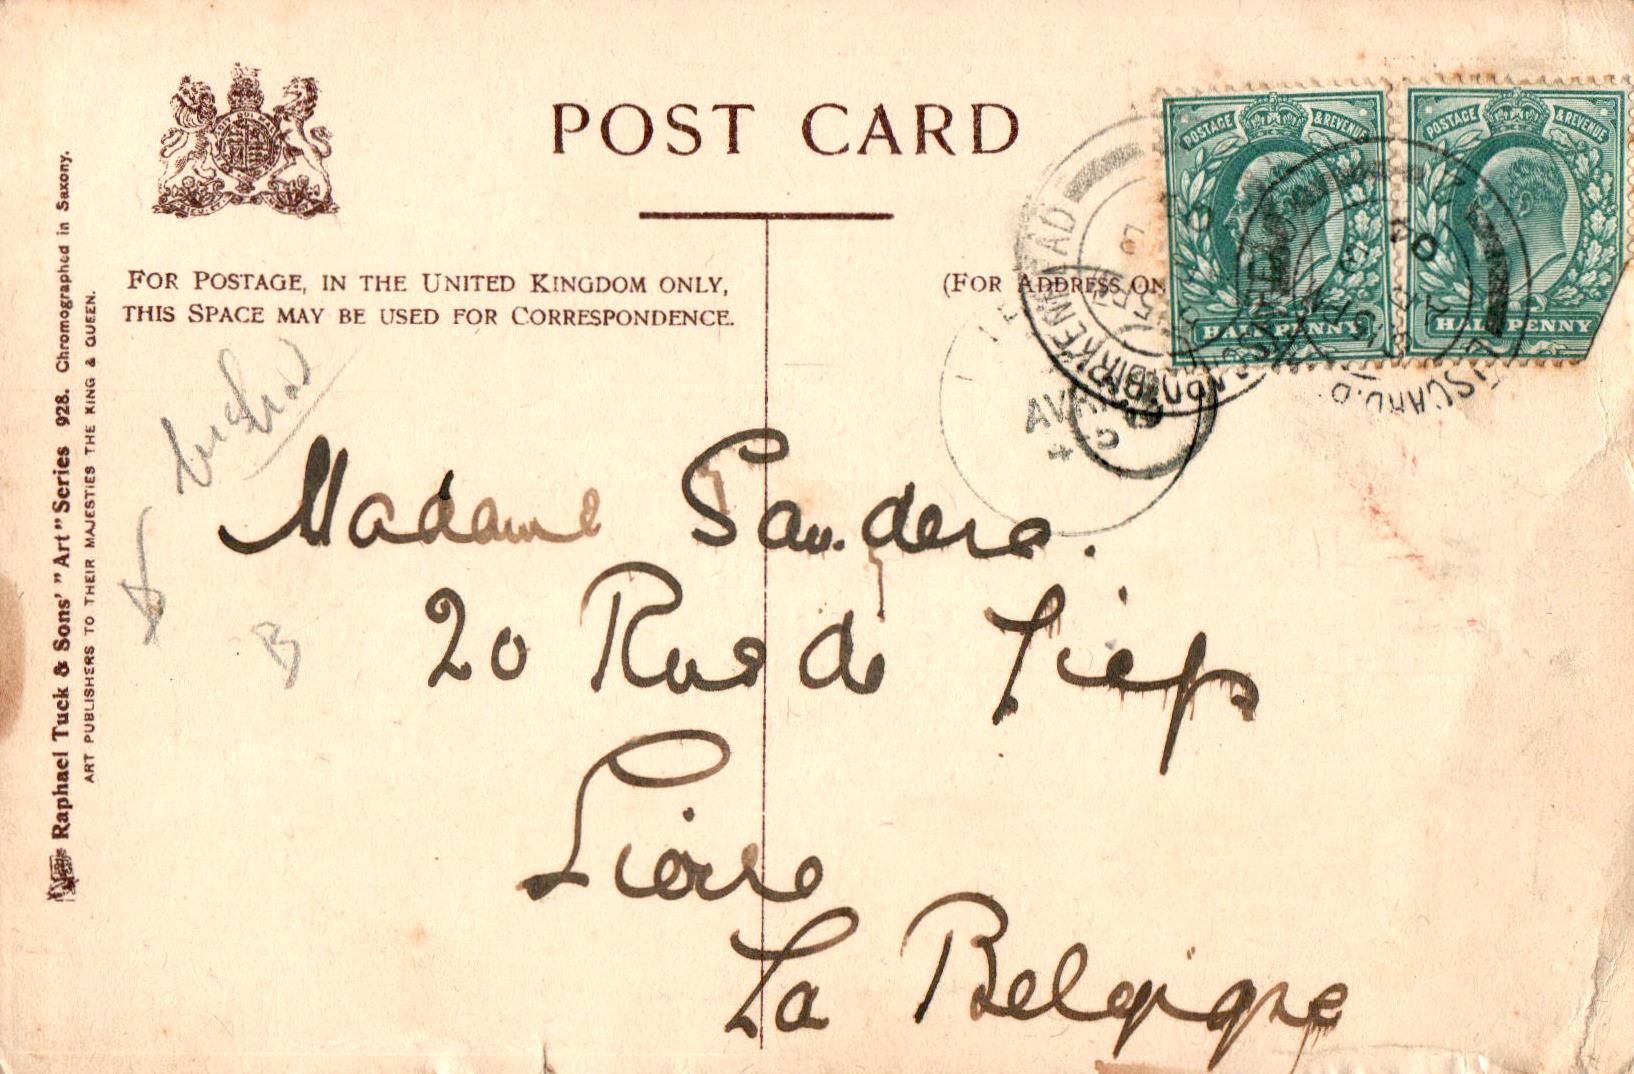 POST CARD
FOR POSTAGE, IN THE UNITED KINGDOM ONLY,
THIS SPACE MAY BE USED FOR CORRESPONDENCE.
(FOR ADDRESS ON
POSTAGE & REVENUE
HALFPENNY
POSTAGE & REVENUE
HALFPENNY
BIRKENHEAD
Raphael Tuck & Sons' "Art" Series 928. Chromographed in Saxony.
ART PUBLISHERS TO THEIR MAJESTIES THE KING & QUEEN.
B
Madame Sanders.
20 Rue de
Lierre
La Belgique